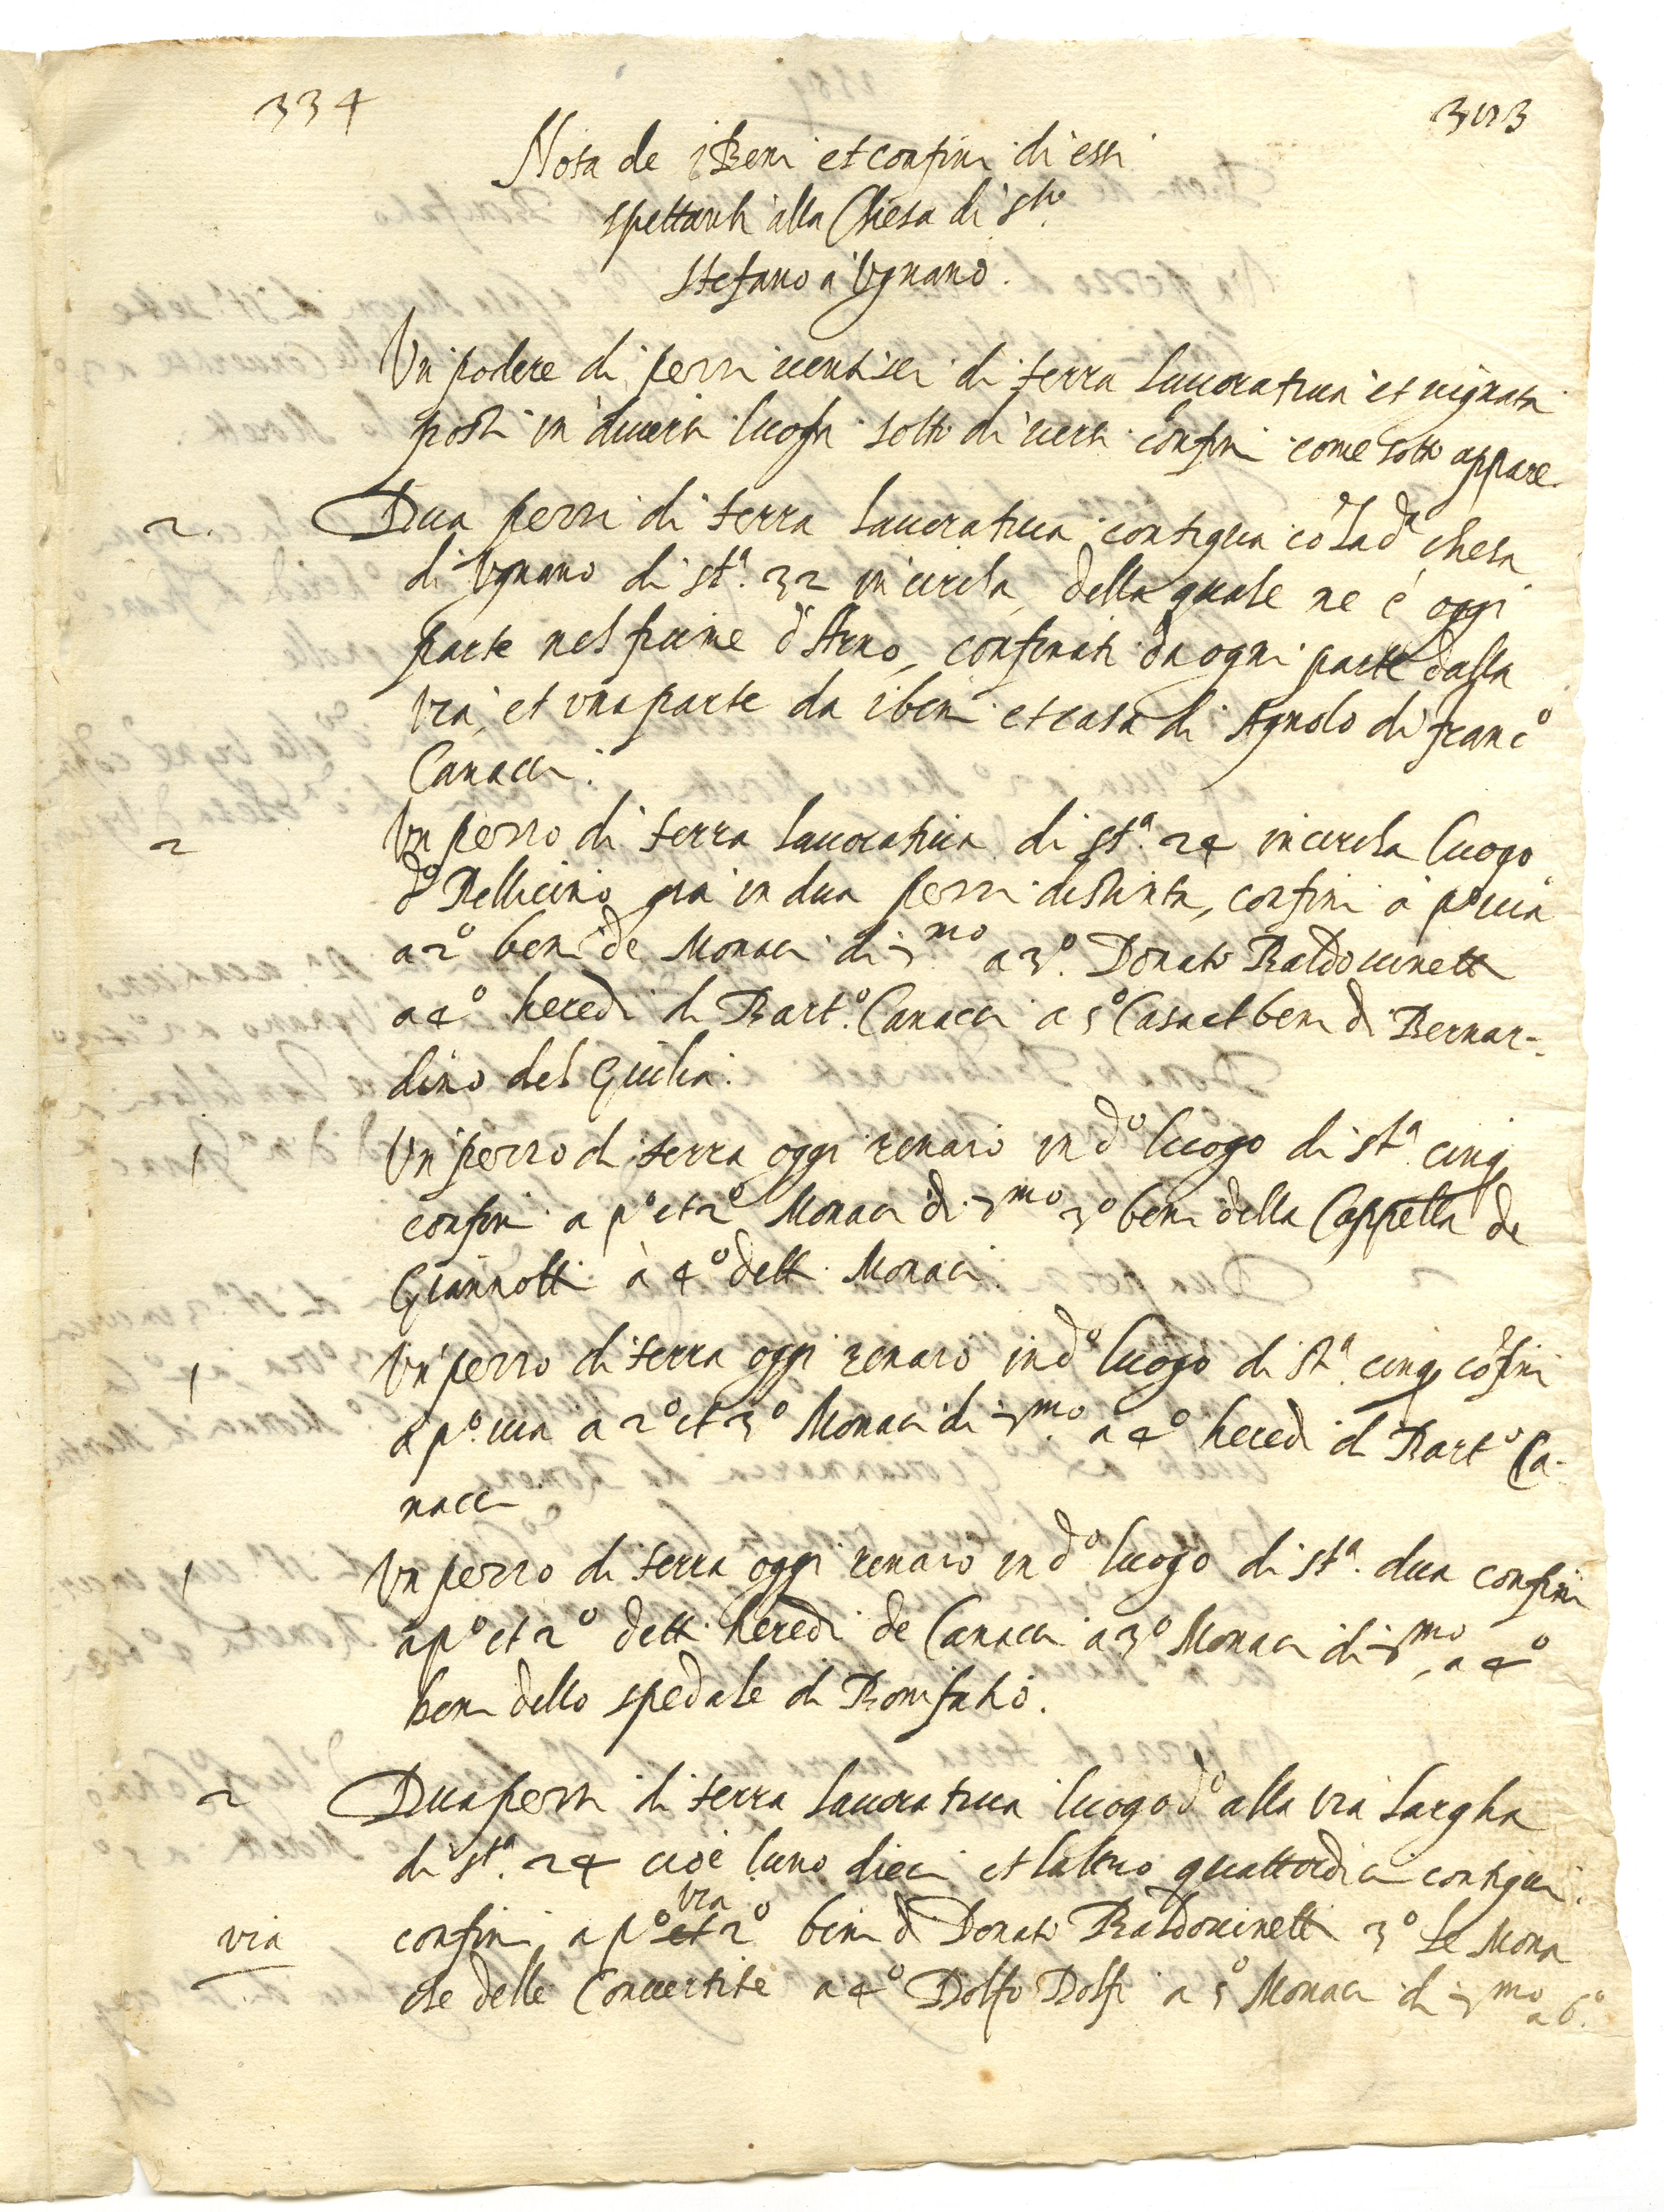 334
303
Nota de i Beni et confini di essi
spettanti alla Chiesa di Sto.
Stefano a Ugnano.
Un podere di pezzi ventisei di terra lavoratiua et uignata
posti in diuersi luoghi sotto diuersi confini come sotto appare.
2. Dua pezzi di terra lauoratiua contigua cō la da chiesa
di Ugnano di sta. 32 incircha, della quale ne è oggi
parte nel fiume d'Arno, confinati da ogni parte dalla
via, et una parte da i beni et casa di Agnolo di francо
Canacci.
2 Un pezzo di terra lauoratiua di sta. 24 incircha luogo
do Pellicino già in dua pezzi distinta, confini à po uia
a 2o beni de Monaci di mo a 3o. Donato Baldouinetti
a 4o heredi di Barto. Canacci a 5o Casa et beni di Bernar-
dino del Giulia.
1 Un pezzo di terra oggi renaio in do luogo di sta. cinq
confini a po et 2o Monaci di mo 3o beni della Cappella de
Giannotti à 4o detti Monaci.
1 Un pezzo di terra oggi renaio in do luogo di sta. cinq cōfini
a po. uia a 2o et 3o Monaci di mo. a 4o heredi di Barto Ca-
nacci
1 Un pezzo di terra oggi renaio in do luogo di sta. dua confini
a po et 2o detti heredi de Canacci a 3o Monaci di mo, a 4o
beni dello spedale di Bonifatio.
2 Dua pezzi di terra lauoratiua luogo do alla via largha
di sta. 24 cioè luno dieci et laltro quattordici contigui.
via
via confini, a po et 2o beni di Donato Baldouinetti 3o le Mona
che delle Conuertite a 4o Dolfo Dolfi a 5o Monaci di mo a 6o.